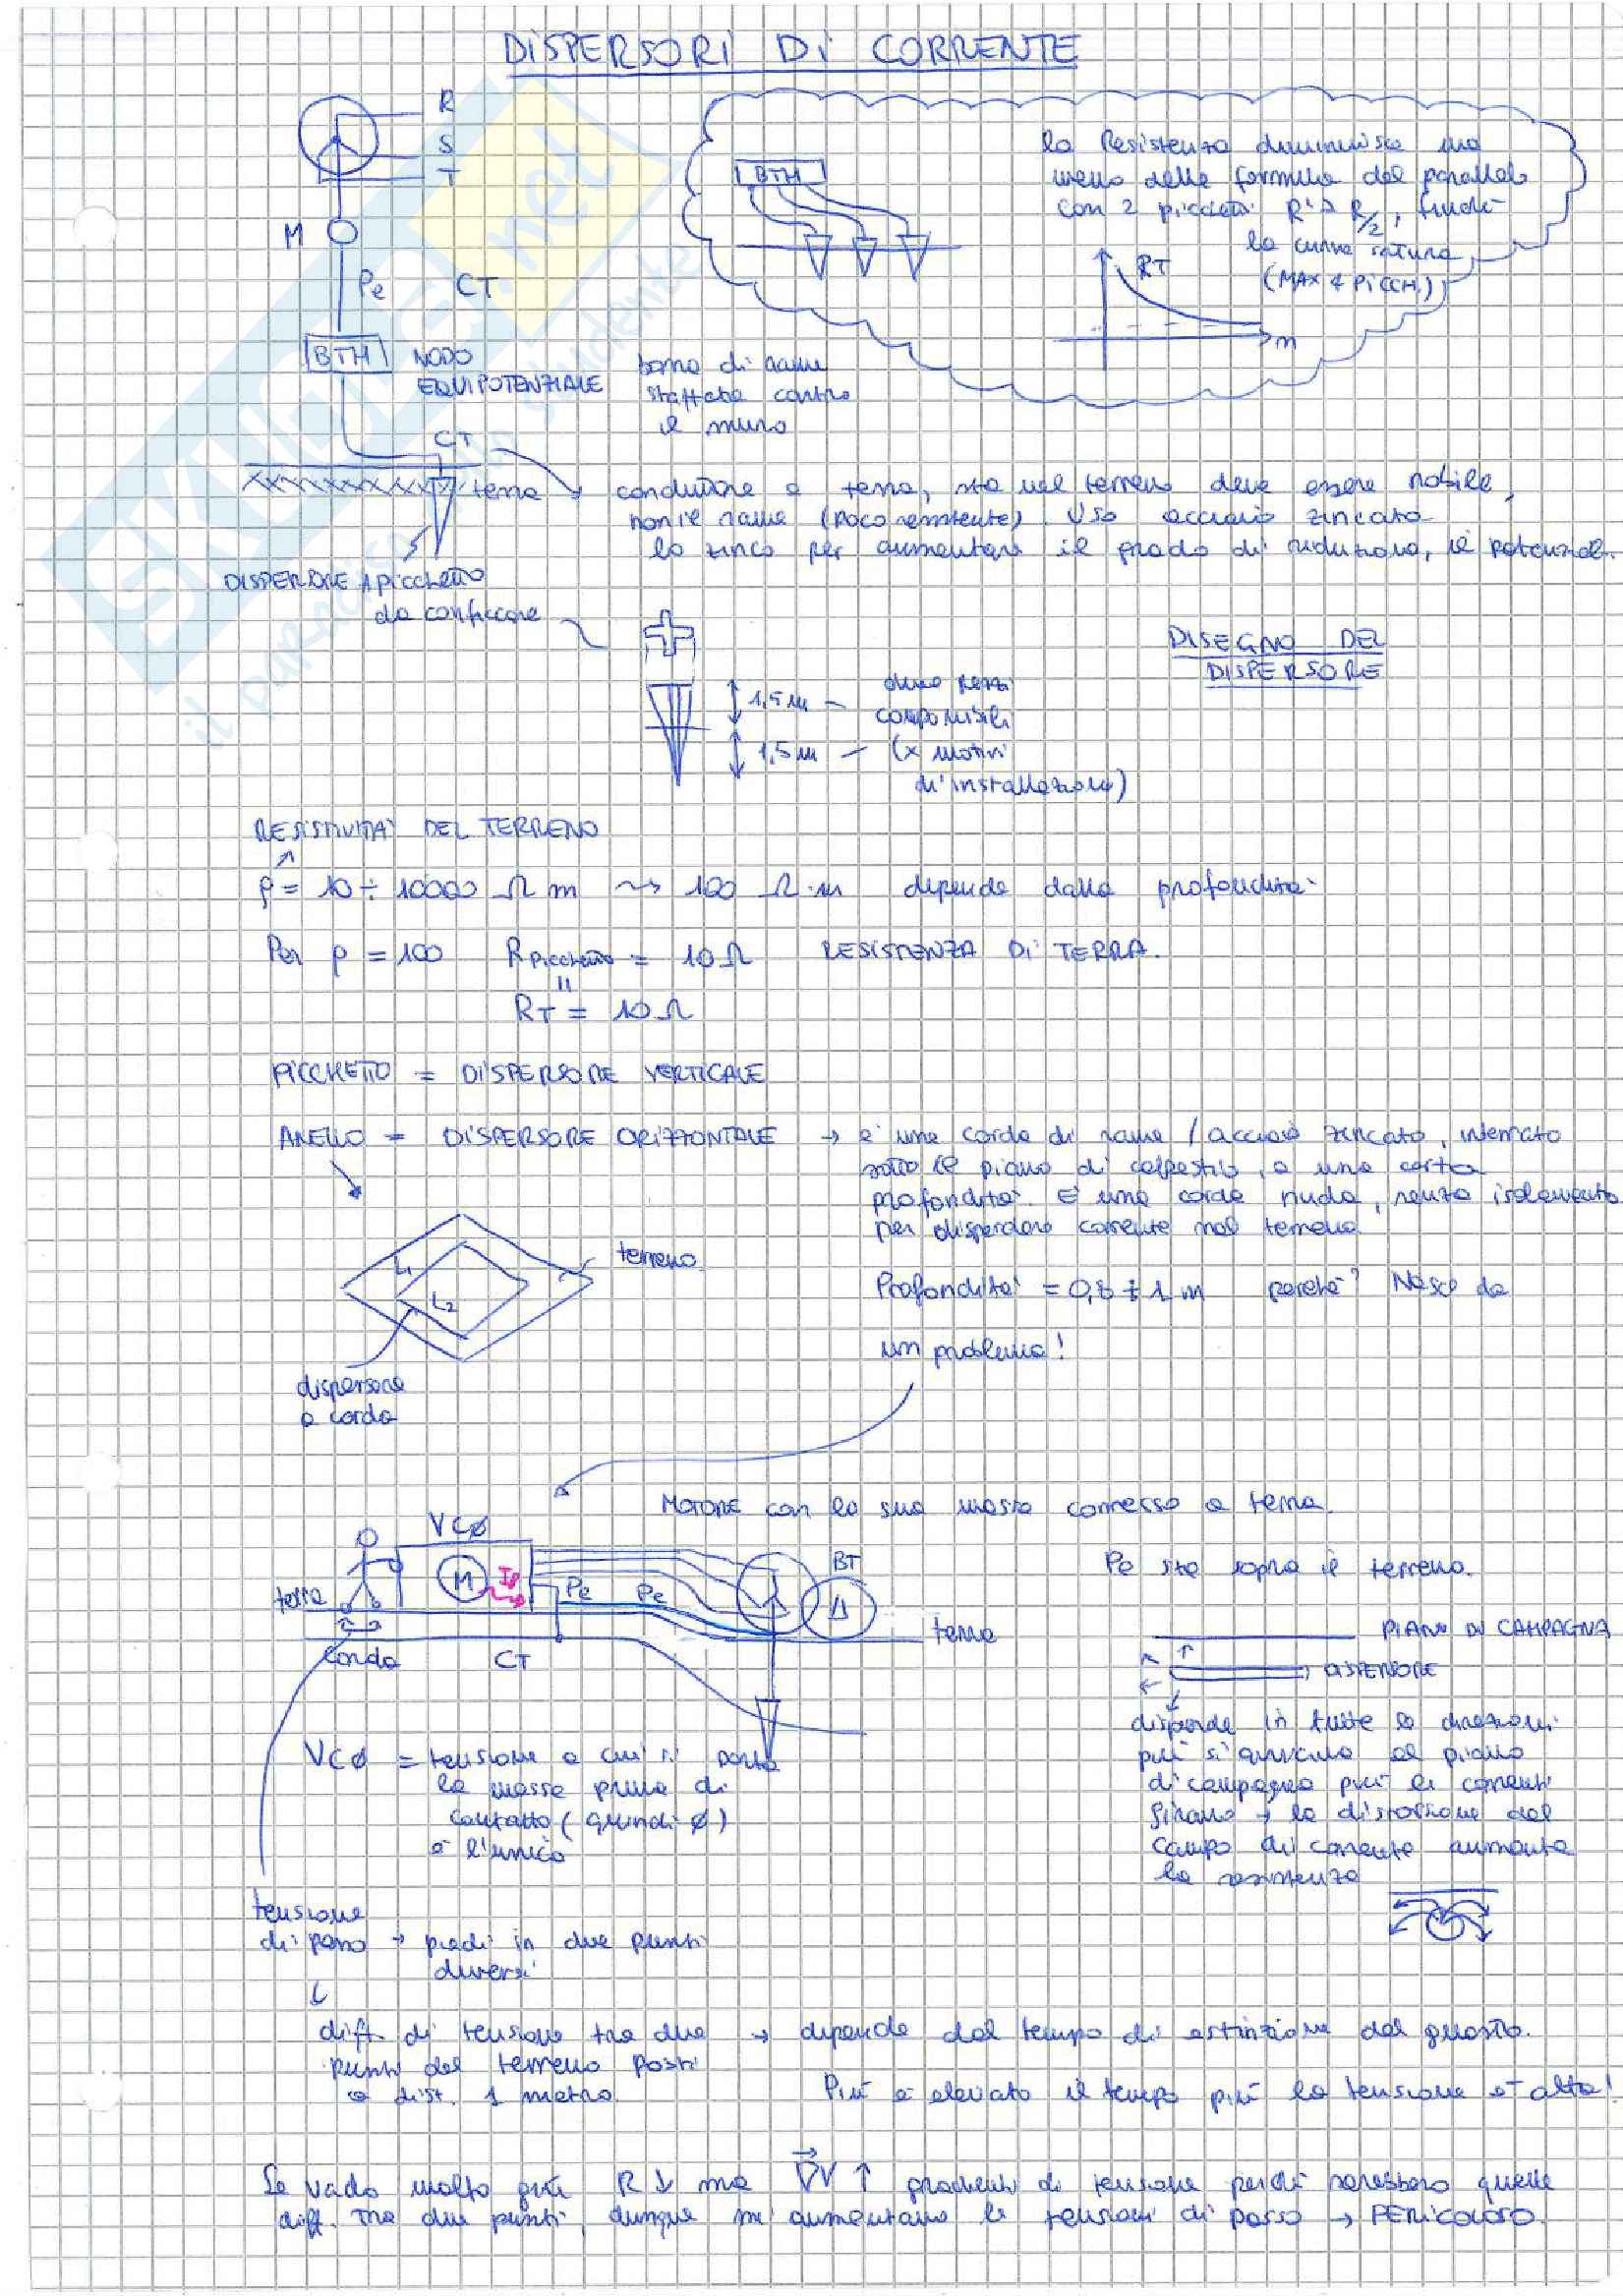 DISPERSORI DI CORRENTE
R
S
T
M
Pe
CT
BTH
NODO
EQUIPOTENZIALE
barra di rame
staffata contro
il muro
BTH
la Resistenza diminuisce ma
meno della formula del parallelo
con 2 picchetti R' > R/2, finché
la curva satura
(MAX 4 PICCH.)
RT
n
CT
terra
conduttore a terra, sta nel terreno deve essere nobile,
non è rame (poco resistente). Uso acciaio zincato
lo zinco per aumentare il grado di riduzione, il potenziale.
DISPERSORE A picchetto
da conficcare
DISEGNO DEL
DISPERSORE
1,5 m
due pezzi
componibili
1,5 m
(x motivi
di installazione)
RESISTIVITA' DEL TERRENO
ρ = 10 ÷ 10000 Ω m ~> 100 Ω·m dipende dalla profondità
Per ρ = 100 R picchetto = 10 Ω RESISTENZA DI TERRA.
RT = 10 Ω
PICCHETTO = DISPERSORE VERTICALE
ANELLO = DISPERSORE ORIZZONTALE → è una corda di rame / acciaio zincato, interrato
sotto il piano di calpestio, a una certa
profondità. È una corda nuda, senza isolamento
per disperdere corrente nel terreno.
L1
L2
terreno
dispersore
a corda
Profondità = 0,8 ÷ 1 m perché? Nasce da
un problema!
MOTORE con la sua massa connessa a terra.
VCØ
M
Pe
Pe
BT
Δ
terra
terra
Corda
CT
Pe sta sopra il terreno.
PIANO DI CAMPAGNA
DISPERSORE
disperde in tutte le direzioni
più si avvicina al piano
di campagna più le correnti
girano → la distorsione del
campo di corrente aumenta
la resistenza
VCØ = tensione a cui si porta
la massa prima di
contatto (quindi Ø)
è l'unico
tensione
di passo → piedi in due punti
diversi
diff. di tensione tra due → dipende dal tempo di estinzione del guasto.
punti del terreno posti
a dist. 1 metro.
Più è elevato il tempo più la tensione è alta!
Se vado molto giù R ↓ ma ∇V ↑ gradienti di tensione perché sarebbero quelle
diff. tra due punti, dunque mi aumentano le tensioni di passo → PERICOLOSO.